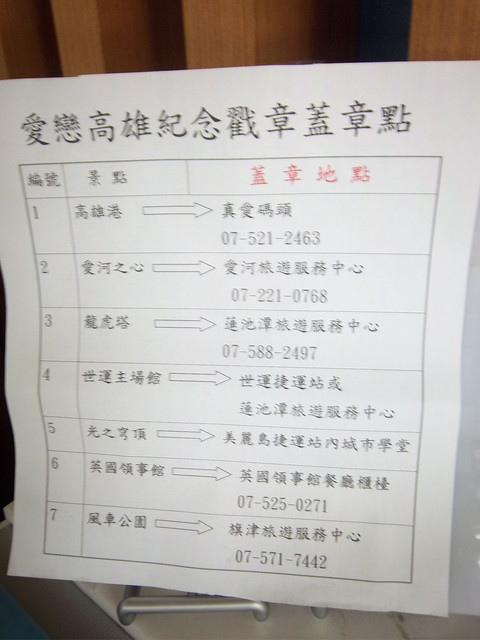 愛戀高雄紀念戳章蓋章點
編號 景點 蓋章地點
1 高雄港 真愛碼頭
07-521-2463
2 愛河之心 愛河旅遊服務中心
07-221-0768
3 龍虎塔 蓮池潭旅遊服務中心
07-588-2497
4 世運主場館 世運捷運站或
蓮池潭旅遊服務中心
5 光之穹頂 美麗島捷運站內城市學堂
6 英國領事館 英國領事館餐廳櫃檯
07-525-0271
7 風車公園 旗津旅遊服務中心
07-571-7442